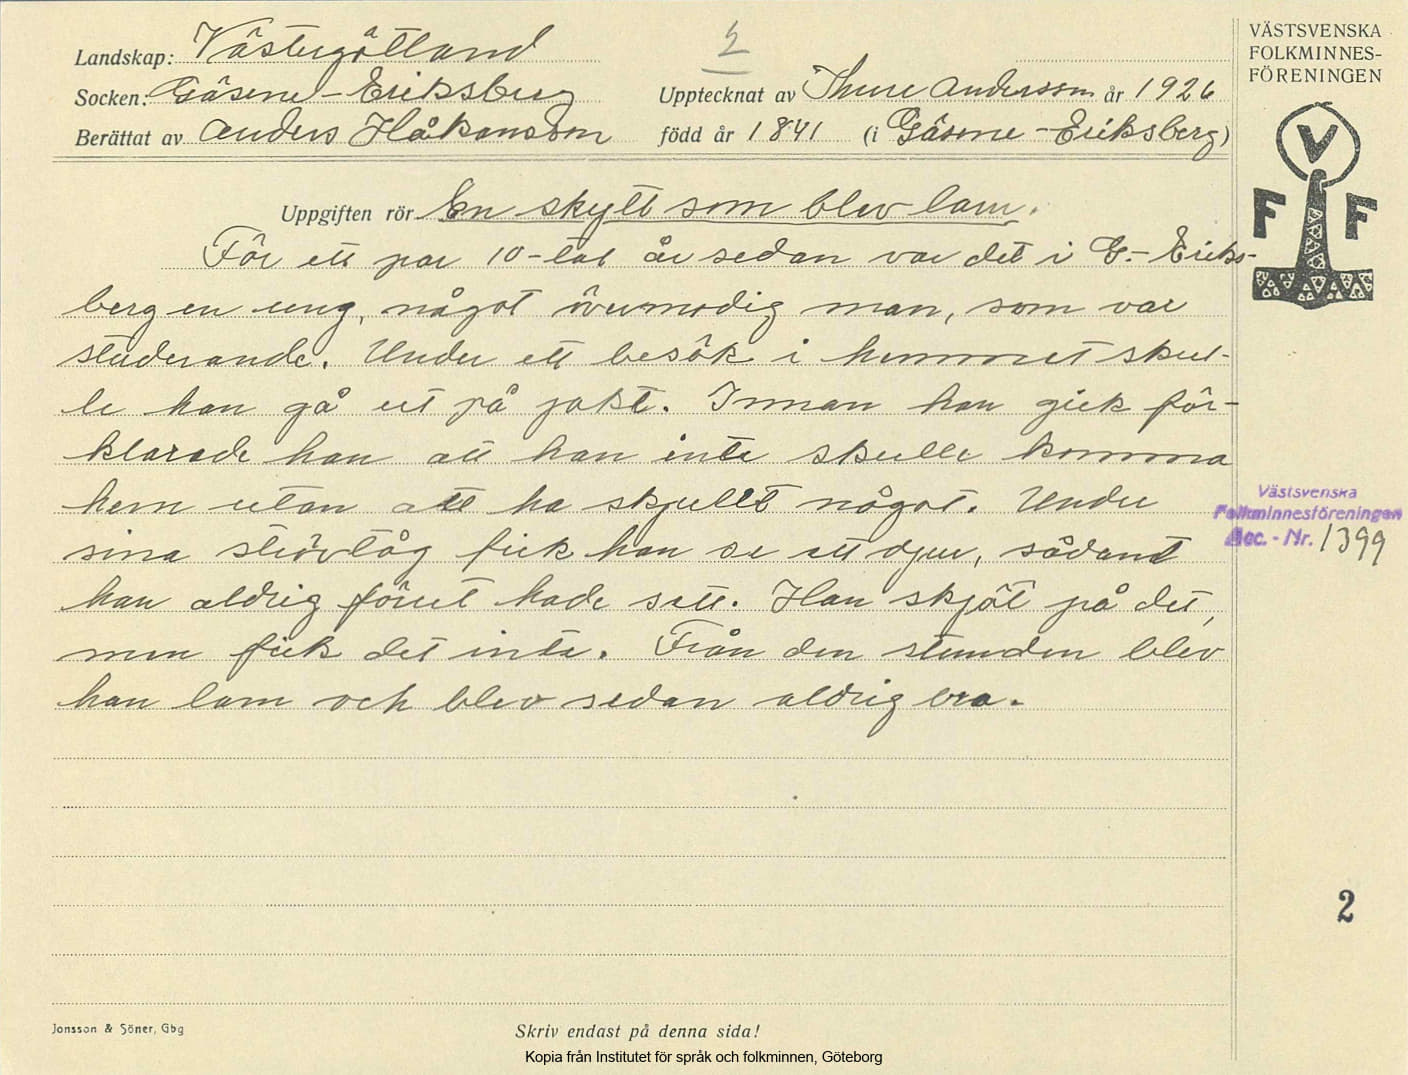 Landskap: Västergötland
2
Socken: Gäsene-Eriksberg
Upptecknat av Thure Andersson år 1926
Berättat av Anders Håkansson
född år 1841 (i Gäsene-Eriksberg)
VÄSTSVENSKA
FOLKMINNES-
FÖRENINGEN
V
F F
Uppgiften rör En skytt som blev lam.
För ett par 10-tal år sedan var det i G.-Eriks-
berg en ung, något övermodig man, som var
studerande. Under ett besök i hemmet skul-
le han gå ut på jakt. Innan han gick för-
klarade han att han inte skulle komma
hem utan att ha skjutit något. Under
sina strövtåg fick han se ett djur, sådant
han aldrig förut hade sett. Han skjöt på det,
men fick det inte. Från den stunden blev
han lam och blev sedan aldrig bra.
Västsvenska
Folkminnesföreningen
Acc.-Nr. 1399
2
Jonsson & Söner, Gbg
Skriv endast på denna sida!
Kopia från Institutet för språk och folkminnen, Göteborg